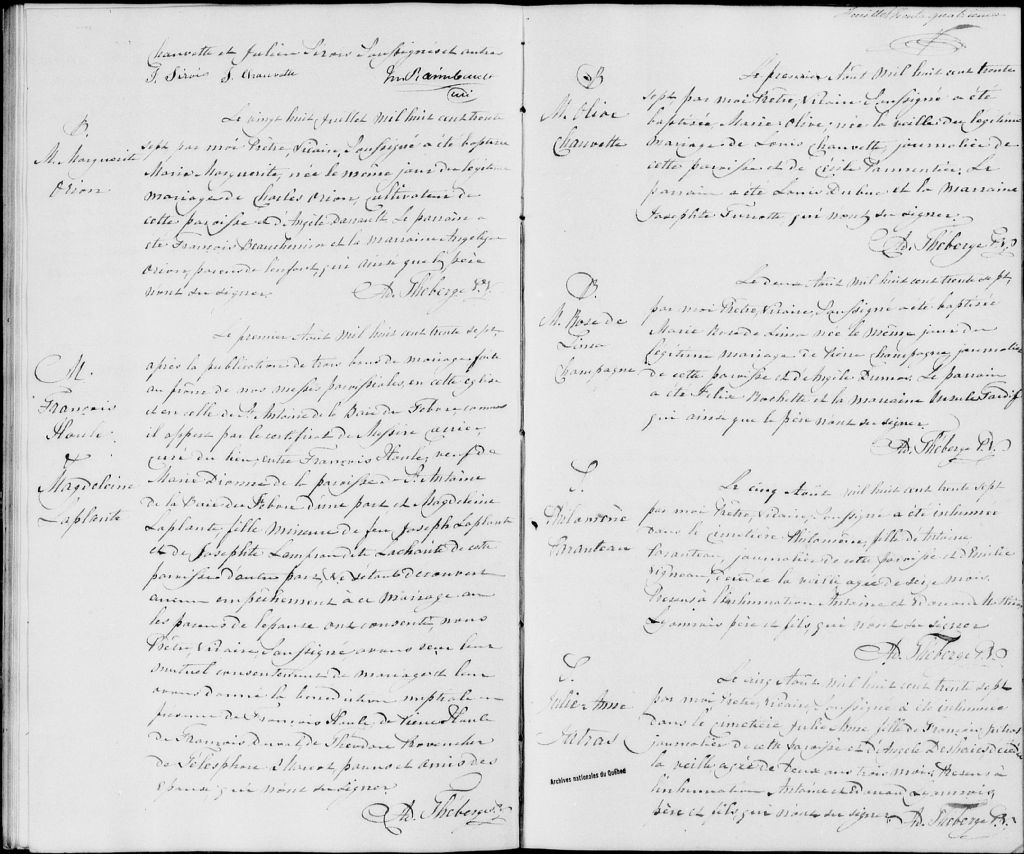 Chauvette et Julien Sirois Soussignés et autre
J. Sirois J. Chauvette
B.
M. Marguerite
Orion
Le vingt huit Juillet mil huit cent trente
sept par moi Prêtre, Vicaire, Soussigné a été baptisée
Marie Marguerite, née le même jour du légitime
mariage de Charles Orion, Cultivateur de
cette paroisse et d'Angèle Darrault. Le parrain a
été François Beauchemin et la marraine Angélique
Orion, parens de l'enfant, qui ainsi que le père
n'ont su signer.
Ad. Théberge Ptr. V.
M.
François
Houle
&
Magdeleine
Laplante
Le premier Août mil huit cent trente sept,
après la publication de trois bans de mariage faite
au prône de nos messes paroissiales, en cette église
et en celle de St. Antoine de la Baie du Febvre, comme
il appert par le certificat de Messire Carrier
curé du lieu, entre François Houle, veuf de
Marie Dionne de la paroisse de St. Antoine
de la Baie du Febvre d'une part et Magdeleine
Laplante, fille mineure de feu Joseph Laplante
et de Josephte Lampron dit Lacharité de cette
paroisse d'autre part, ne s'étant découvert
aucun empêchement à ce mariage au
les parens de l'épouse ont consenti, nous
Prêtre, Vicaire, Soussigné avons reçu leur
mutuel consentement de mariage et leur
avons donné la bénédiction nuptiale en
présence de François Houle, de Pierre Houle
de François Duval, de Théodore Provencher
de Télesphore parens et amis des
époux, qui n'ont su signer.
Ad. Théberge Ptr. V.
Feuillet trente quatrième
B
M. Olive
Chauvette
Le premier Août mil huit cent trente
sept par moi Prêtre, Vicaire, Soussigné a été
baptisée Marie Olive, née la veille du légitime
mariage de Louis Chauvette, journalier de
cette paroisse et de Cécile Parmentier. Le
parrain a été Louis Dubuc et la marraine
Josephte Turcotte, qui n'ont su signer.
Ad. Théberge P. V.
B.
M. Rose de
Lima
Champagne
Le deux Août mil huit cent trente sept,
par moi Prêtre, Vicaire, Soussigné a été baptisée
Marie Rose de Lima née le même jour du
légitime mariage de Pierre Champagne, journalier
de cette paroisse et d'Angèle Dumas. Le parrain
a été Félix Rochette et la marraine Ursule Tardif
qui ainsi que le père n'ont su signer.
Ad. Théberge P. V.
S.
Philomène
Paranteau
Le cinq Août mil huit cent trente sept
par moi Prêtre, Vicaire, Soussigné a été inhumée
dans le cimetière Philomène, fille d'Antoine
Paranteau, journalier de cette paroisse et d'Emilie
Vigneau, décédée la veille agée de seize mois.
Présens à l'inhumation Antoine et Edouard
Lyonnais père et fils, qui n'ont su signer
Ad. Théberge P. V.
S.
Julie Anne
Jutras
Le cinq Août mil huit cent trente sept
par moi Prêtre, Vicaire, Soussigné a été inhumée
dans le cimetière Julie Anne fille de François Jutras
journalier de cette paroisse et de Angèle Deshaies décédée
la veille agée de deux ans trois mois. Présens à
l'inhumation Antoine et Edouard Lyonnais
père et fils, qui n'ont su signer Ad. Théberge P. V.
Archives nationales du Québec